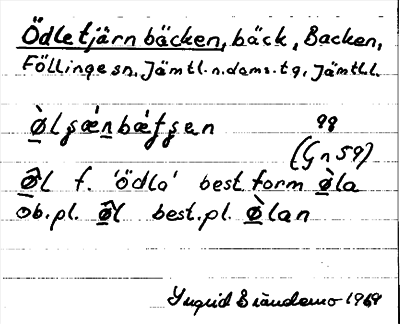 Ödletjärnbäcken, bäck, Backen,
Föllinge sn, Jämtl. n. doms. tg, Jämtl. l.
ø̀lʂæ̀nbæ̀ʂʂen gg
(Gn 59)
ø̂l f. 'ödla' best form ø̀la
ob.pl. ø̂l best.pl. ø̀lan
Yngrid Brändemo 1969